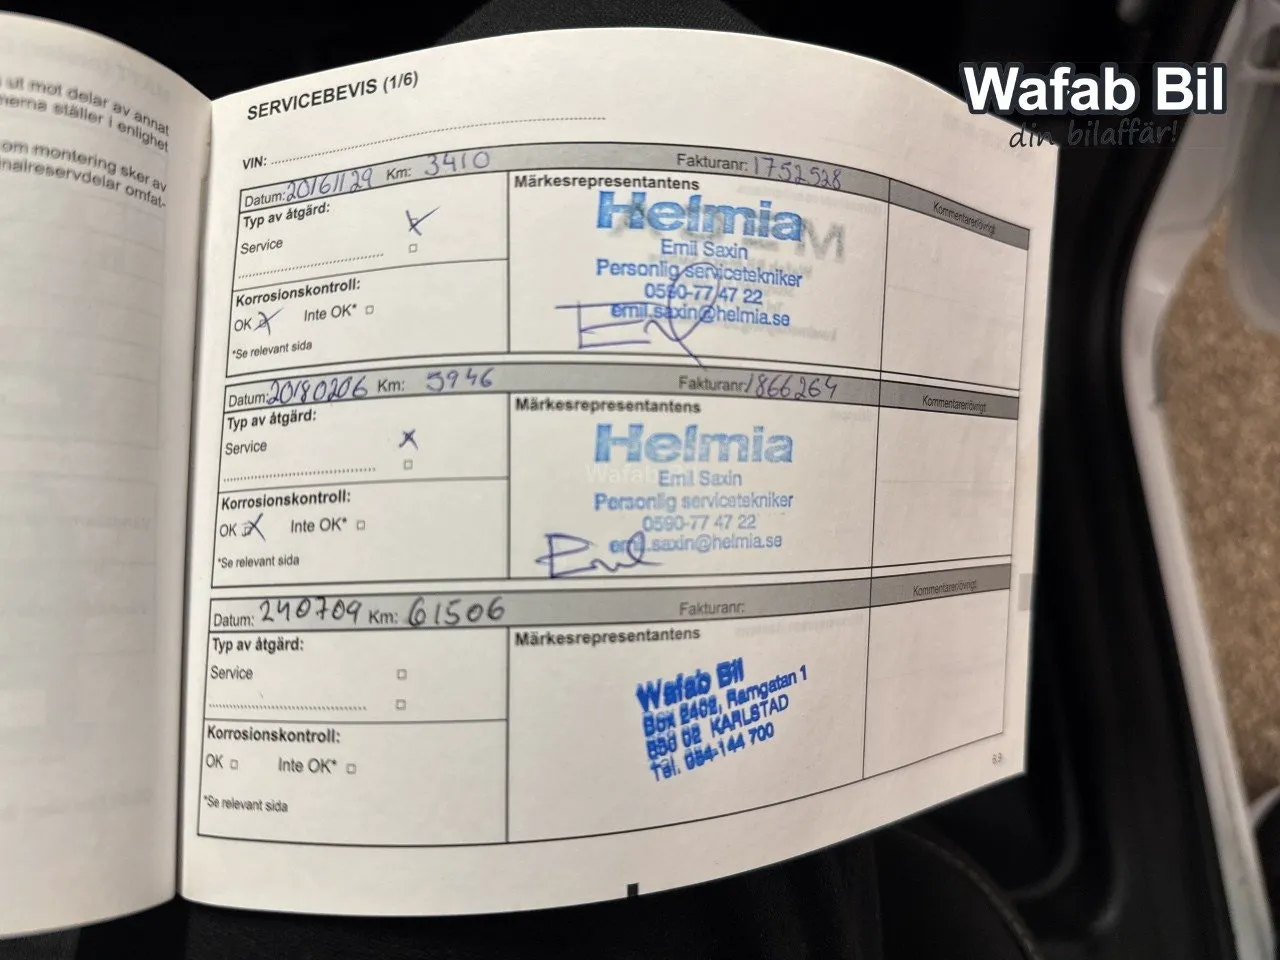 Wafab Bil
din bilaffär!
ut mot delar av annat
ställer i enlighet
om montering sker av
nalreservdelar omfat-
SERVICEBEVIS (1/6)
VIN:
Datum: 20161129 Km: 3410 Fakturanr: 1752528
Typ av åtgärd:
Service
Korrosionskontroll:
OK Inte OK*
*Se relevant sida
Märkesrepresentantens
Helmia
Emil Saxin
Personlig servicetekniker
0590-77 47 22
emil.saxin@helmia.se
Kommentarer/övrigt
Datum: 20180206 Km: 5946 Fakturanr: 1866264
Typ av åtgärd:
Service
Korrosionskontroll:
OK Inte OK*
*Se relevant sida
Märkesrepresentantens
Helmia
Emil Saxin
Personlig servicetekniker
0590-77 47 22
emil.saxin@helmia.se
Kommentarer/övrigt
Datum: 240709 Km: 61506 Fakturanr:
Typ av åtgärd:
Service
Korrosionskontroll:
OK Inte OK*
*Se relevant sida
Märkesrepresentantens
Wafab Bil
Box 2402, Ramgatan 1
KARLSTAD
Tel. 054-144 700
Kommentarer/övrigt